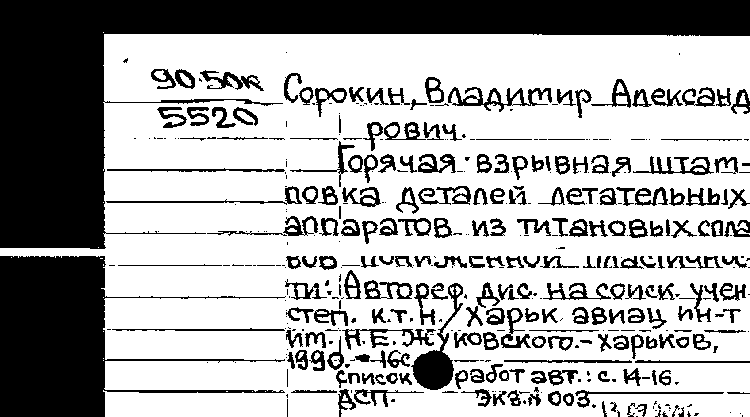 90-50к
5520
Сорокин, Владимир Александ
рович.
Горячая взрывная штам-
повка деталей летательных
аппаратов из титановых спла
вов пониженной пластичнос
ти: Автореф. дис. на соиск. учен
степ. к.т.н. / Харьк авиац ин-т
им. Н.Е. Жуковского.- Харьков,
1990. - 16с.
Список работ авт.: с. 14-16.
ДСП. Экз.N 003.